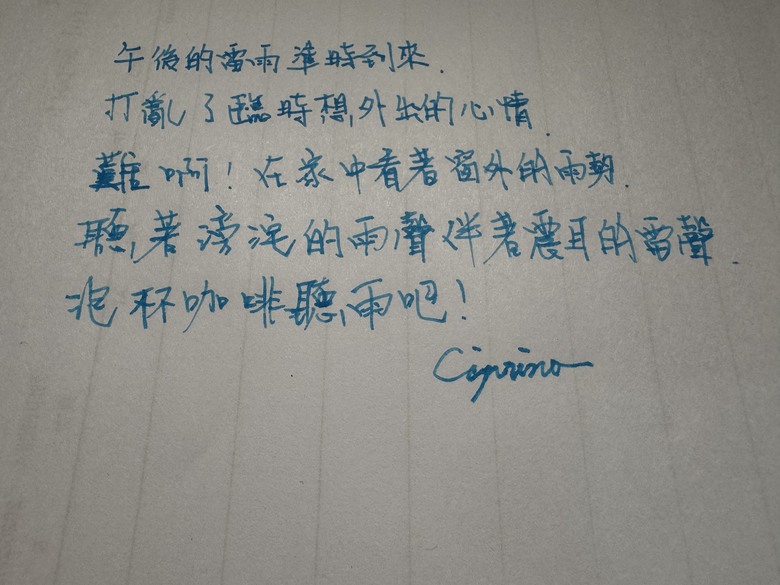 午後的雷雨準時到來.
打亂了臨時想外出的心情.
難啊!在家中看著窗外的雨朝.
聽著滂沱的雨聲伴著震耳的雷聲.
泡杯咖啡聽雨吧!
Ciprino